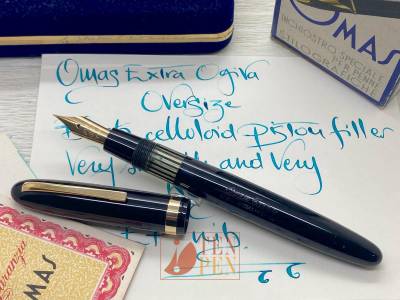 OMAS
INCHIOSTRO SPECIALE
PER PENNE
STILOGRAFICHE
Omas Extra Ogiva
Oversize
celluloid piston filler
Very and very
nib.
PEN
MAS